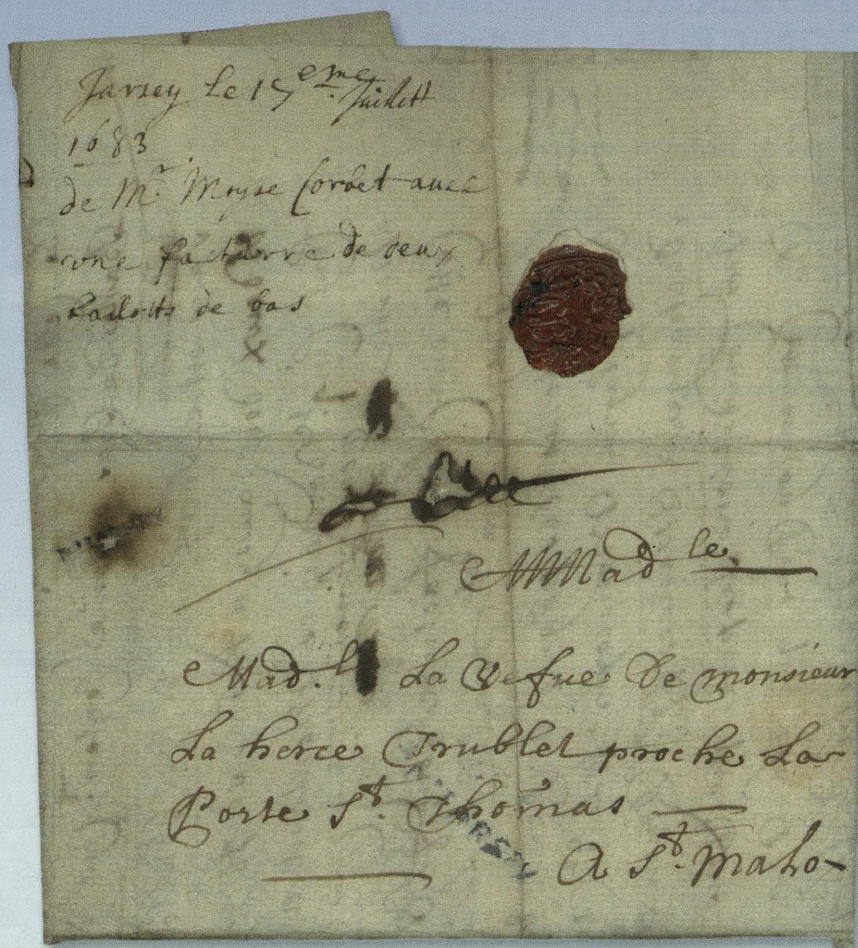 Jarsey Le 15eme Juillett
1683
de Mr. Moyse Corbet auec
vne facturre de deux
ballotts de bas
Mad le
Mad. le La Vefue De monsieur
La herce Trublet proche La
Porte St. Thomas
A St. Malo